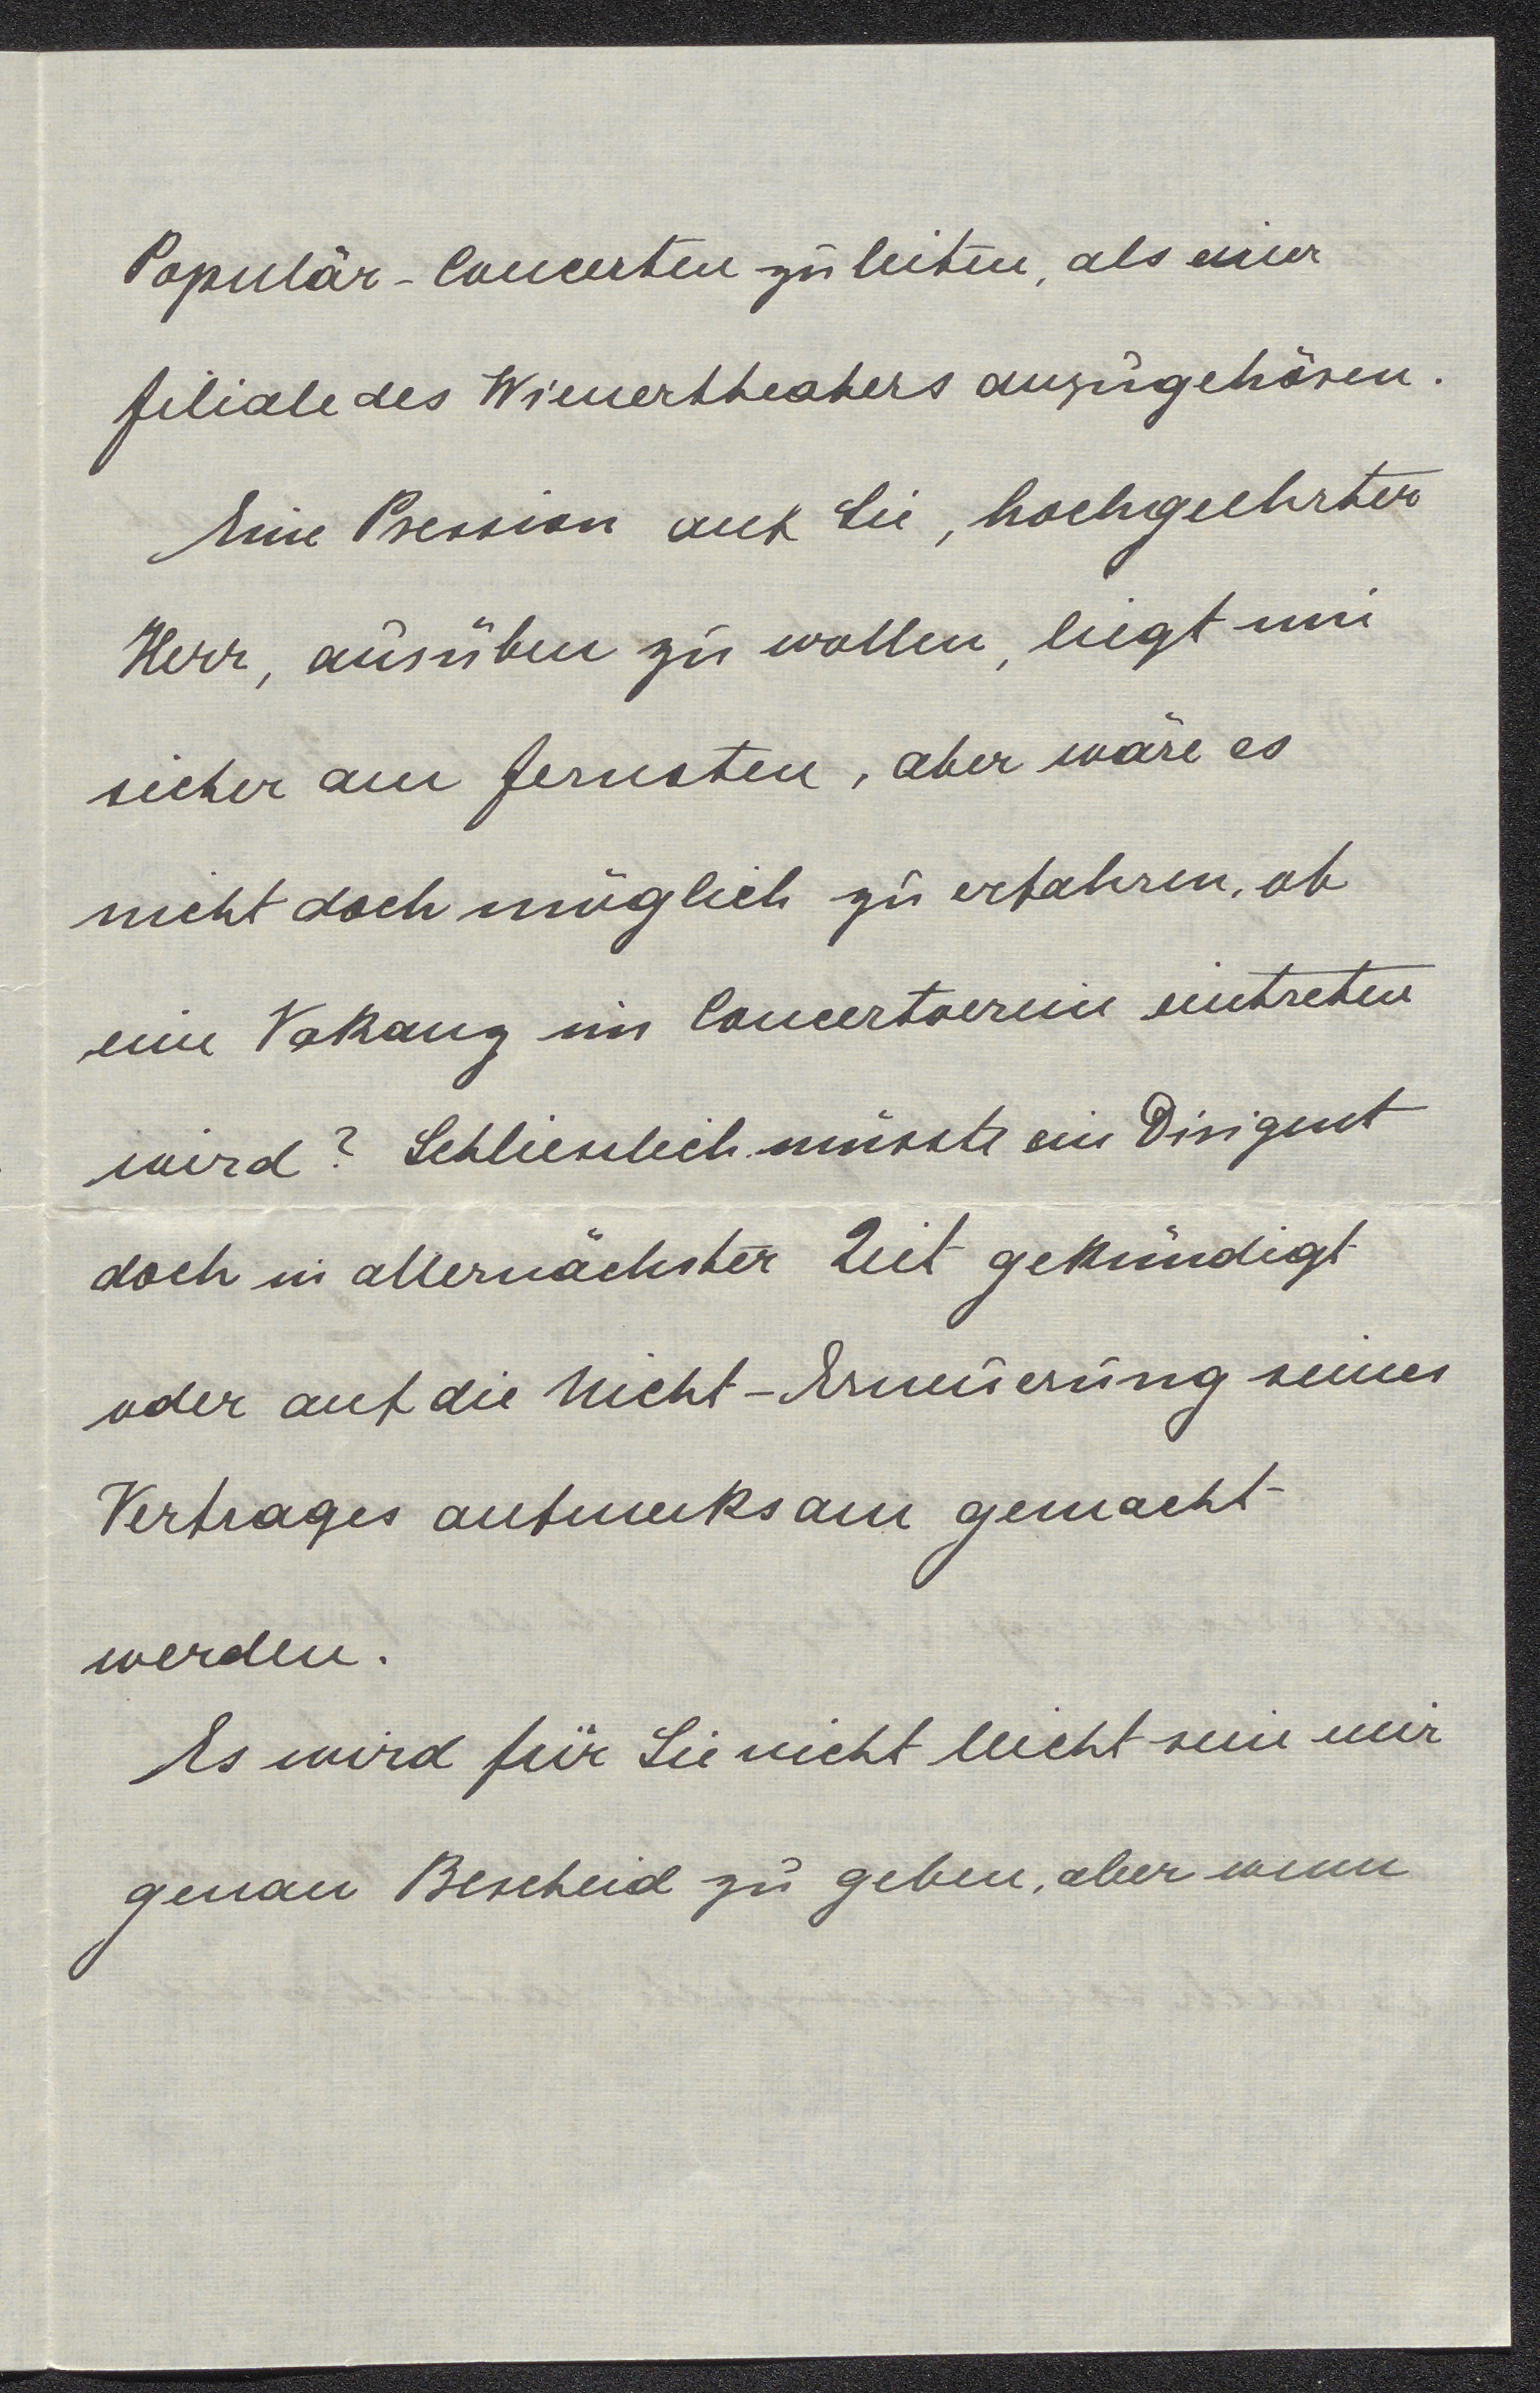 Populär-Concerten zu leiten, als einer
Filiale des Wienertheaters anzugehören.
Eine Pression auf Sie, hochgeehrter
Herr, ausüben zu wollen, liegt mir
sicher am fernsten, aber wäre es
nicht doch möglich zu erfahren, ob
eine Vakanz im Concertverein eintreten
wird? Schliesslich müsste ein Dirigent
doch in allernächster Zeit gekündigt
oder auf die Nicht-Erneuerung seines
Vertrages aufmerksam gemacht
werden.
Es wird für Sie nicht leicht sein mir
genau Bescheid zu geben, aber wenn